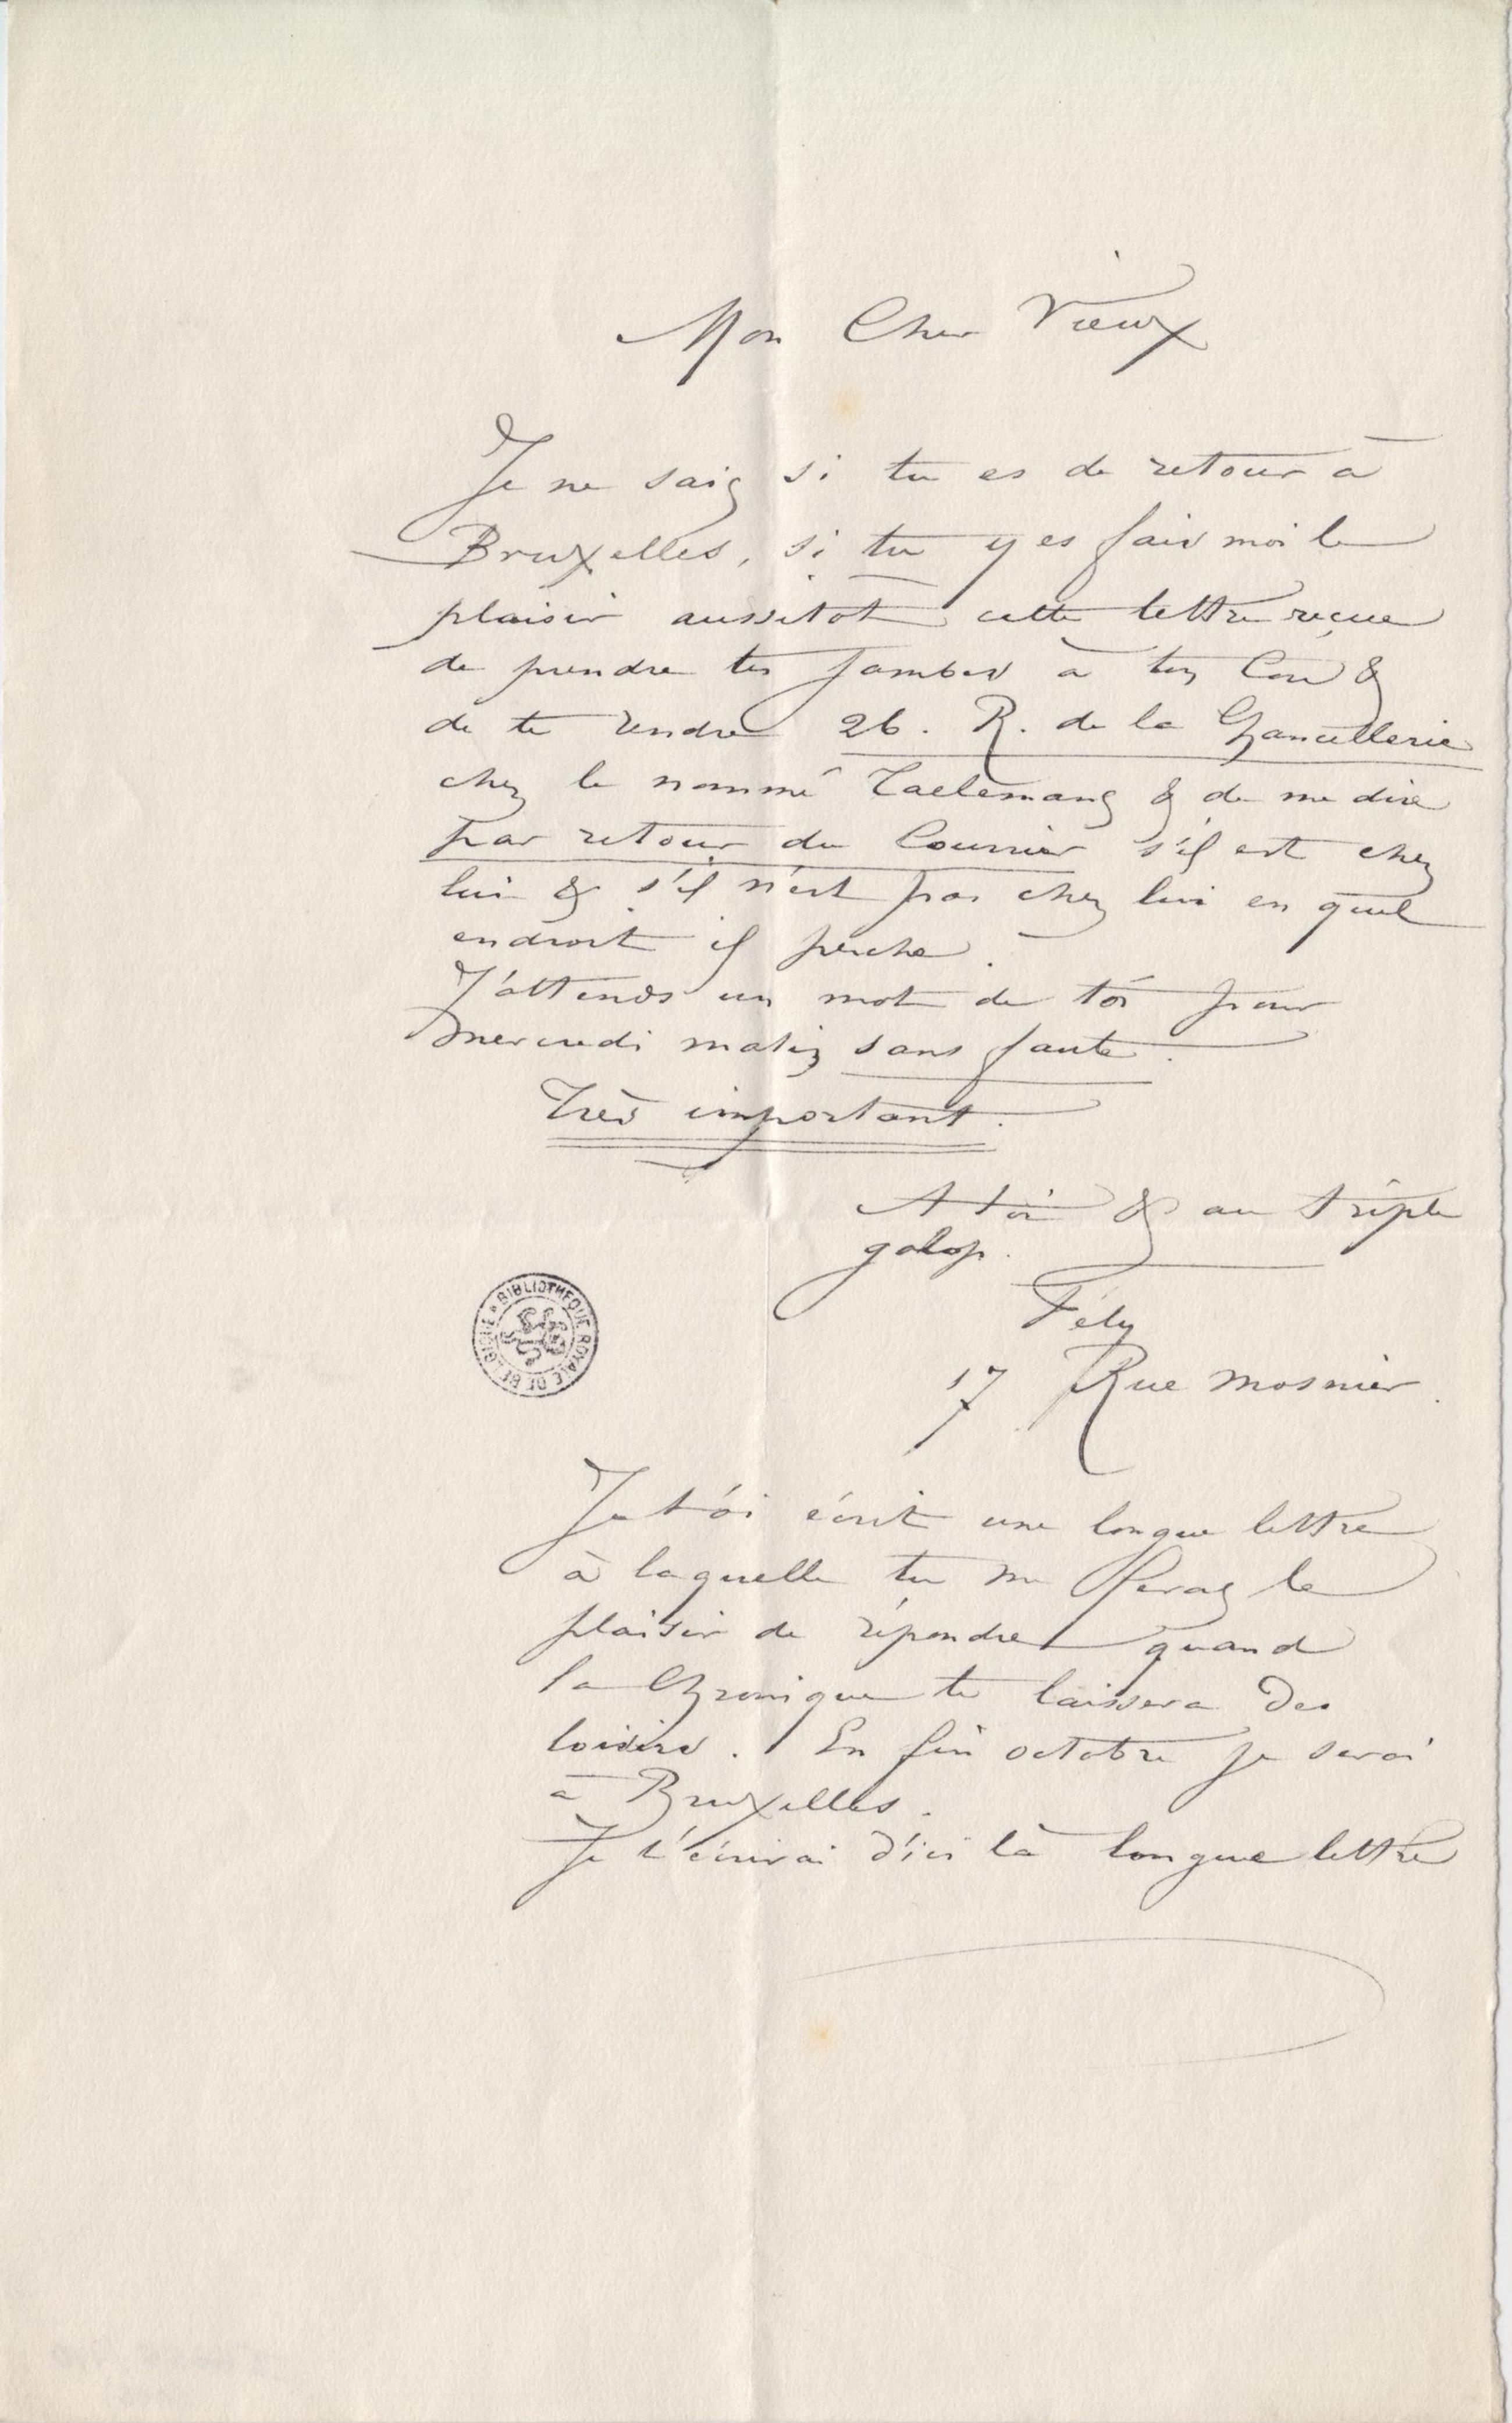 Mon Cher Vieux
Je ne sais si tu es de retour à
Bruxelles, si tu y es fais moi le
plaisir aussitôt cette lettre reçue
de prendre tes jambes à ton Cou &
de te rendre 26. R. de la Chancellerie
chez le nommé Taelemans & de me dire
par retour du Courrier s'il est chez
lui & s'il n'est pas chez lui en quel
endroit il perche.
J'attends un mot de toi pour
mercredi matin sans faute.
Très important.
A toi & au triple
galop.
Fély
17 Rue Mosnier.
BIBLIOTHEQUE ROYALE DE BELGIQUE
Je t'ai écrit une longue lettre
à laquelle tu me feras le
plaisir de répondre quand
la Chronique te laissera des
loisirs. En fin octobre je serai
à Bruxelles.
Je t'écrirai d'ici là longue lettre